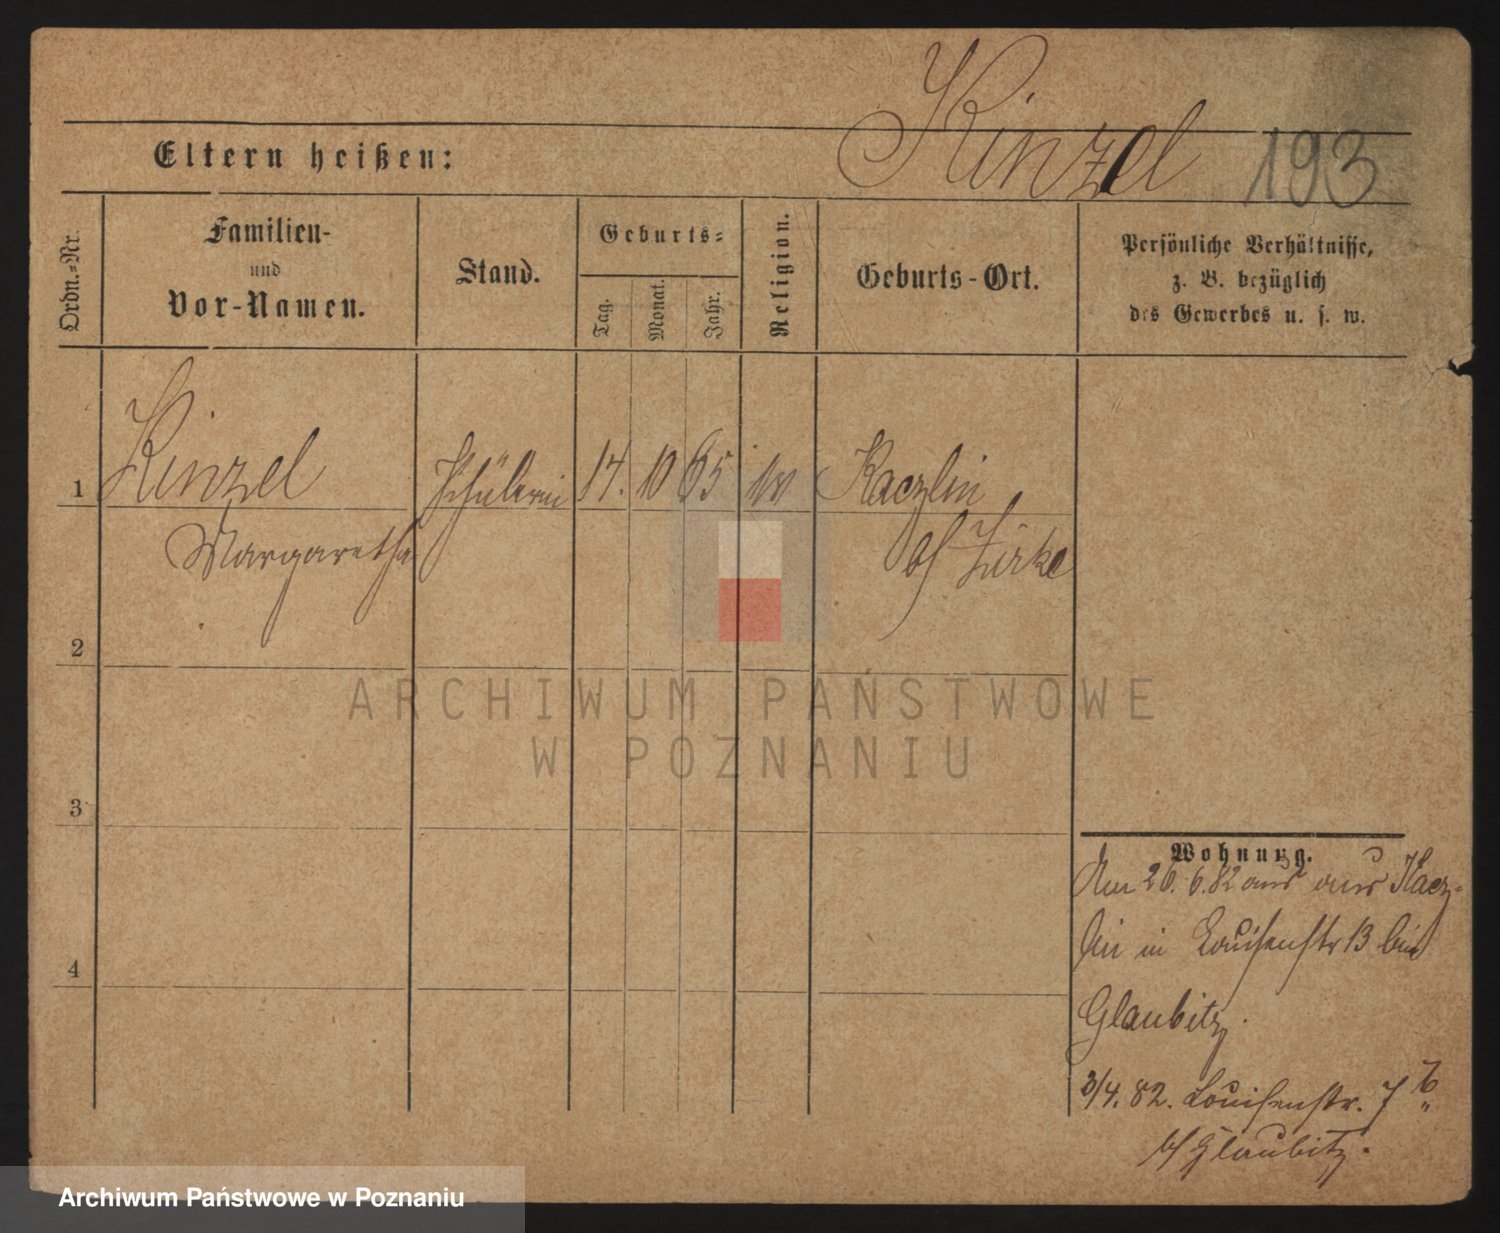 Kinzel 193
Eltern heißen:
Ordn.-Nr.
Familien-
und
Vor-Namen.
Stand.
Geburts-
Tag.
Monat.
Jahr.
Religion.
Geburts-Ort.
Persönliche Verhältnisse,
z. B. bezüglich
des Gewerbes u. s. w.
1 Kinzel Schülerin 14. 10 65 Kaczlin
Margarethe b/ Zirke
2
3
4
Wohnung.
Am 26. 6. 82 aus Kacz-
lin in Louisenstr 13 bei
Glaubitz.
3/4. 82. Louisenstr. 7 b
b/ Glaubitz.
ARCHIWUM PAŃSTWOWE
W POZNANIU
Archiwum Państwowe w Poznaniu